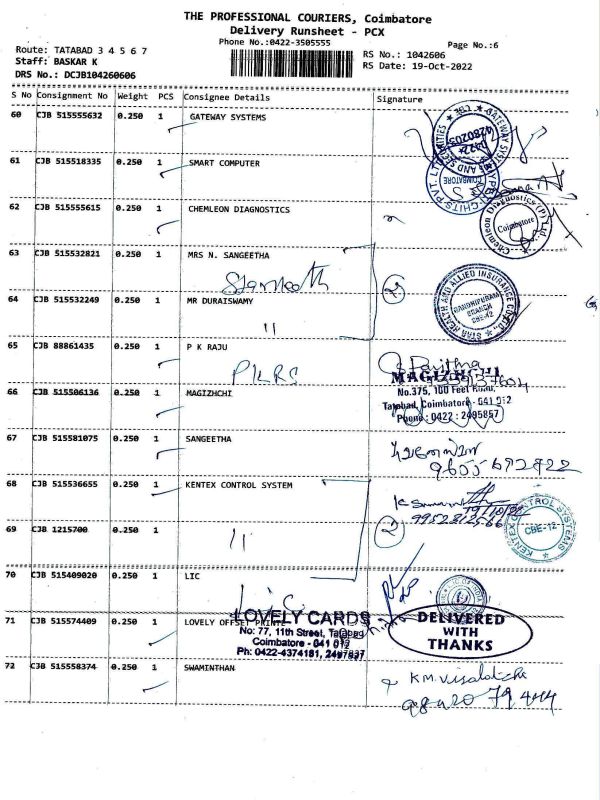 THE PROFESSIONAL COURIERS, Coimbatore
Delivery Runsheet - PCX
Phone No.:0422-3505555
Page No.:6
Route: TATABAD 3 4 5 6 7
Staff: BASKAR K
DRS No.: DCJB104260606
RS No.: 1042606
RS Date: 19-Oct-2022
S No Consignment No Weight PCS Consignee Details Signature
60 CJB 515555632 0.250 1 GATEWAY SYSTEMS
61 CJB 515518335 0.250 1 SMART COMPUTER
COIMBATORE
62 CJB 515555615 0.250 1 CHEMLEON DIAGNOSTICS
Chemleon Diagnostics (P) Ltd.
Coimbatore
63 CJB 515532821 0.250 1 MRS N. SANGEETHA
2
STAR HEALTH AND ALLIED INSURANCE CO. LTD.
GANDHIPURAM
BRANCH
CBE-12
64 CJB 515532249 0.250 1 MR DURAISWAMY
11
65 CJB 88861435 0.250 1 P K RAJU
PKRS
MAGIZHCHI
No.375, 100 Feet Road,
Tatabad, Coimbatore - 641 012
Phone : 0422 : 2495857
66 CJB 515506136 0.250 1 MAGIZHCHI
67 CJB 515581075 0.250 1 SANGEETHA
9655692822
68 CJB 515536655 0.250 1 KENTEX CONTROL SYSTEM
19/10/22
9952812566
2
KENTEX CONTROL SYSTEMS
CBE-12
69 CJB 1215700 0.250 1
11
70 CJB 515409020 0.250 1 LIC
71 CJB 515574409 0.250 1 LOVELY OFFSET PRINTE
LOVELY CARDS
No: 77, 11th Street, Tatabad
Coimbatore - 641 012
Ph: 0422-4374181, 2497837
DELIVERED
WITH
THANKS
72 CJB 515558374 0.250 1 SWAMINTHAN
K.M. Visalatche